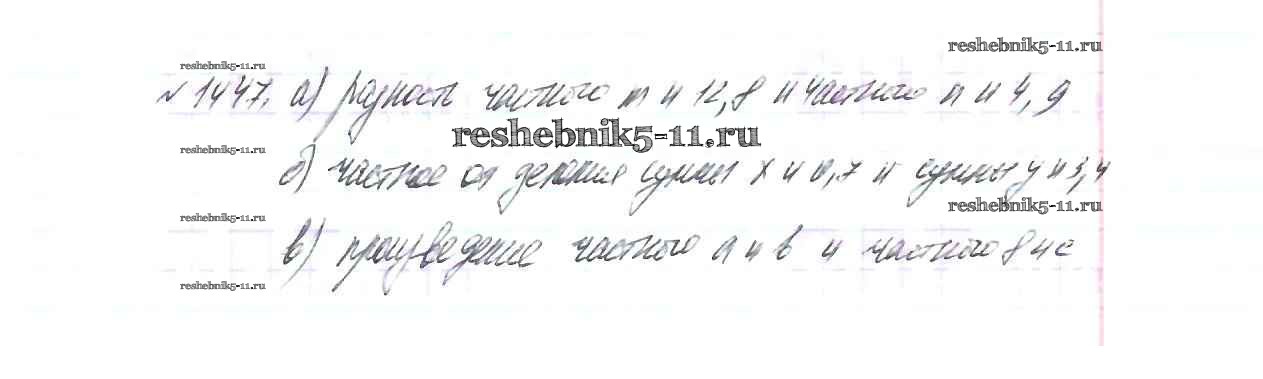 reshebnik5-11.ru
reshebnik5-11.ru
№ 1447. а) разность частного m и 12,8 и частного n и 4,9
reshebnik5-11.ru
reshebnik5-11.ru
б) частное от деления суммы x и 0,7 и суммы y и 3,4
reshebnik5-11.ru
reshebnik5-11.ru
в) произведение частного a и b и частного 8 и c
reshebnik5-11.ru